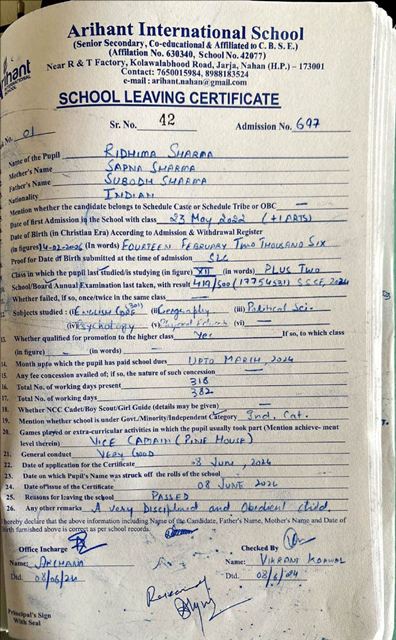 Arihant International School
(Senior Secondary, Co-educational & Affiliated to C. B. S. E.)
(Affilation No. 630340, School No. 42077)
Near R & T Factory, Kolawalabhood Road, Jarja, Nahan (H.P.) – 173001
Contact: 7650015984, 8988183524
e-mail : arihant.nahan@gmail.com
Arihant
SCHOOL LEAVING CERTIFICATE
Sr. No. 42 Admission No. 697
No. 01
Name of the Pupil RIDHIMA SHARMA
Mother's Name SAPNA SHARMA
Father's Name SUBODH SHARMA
Nationality INDIAN
Mention whether the candidate belongs to Schedule Caste or Schedule Tribe or OBC —
Date of first Admission in the School with class 23 May 2022 (+1 ARTS)
Date of Birth (in Christian Era) According to Admission & Withdrawal Register
(in figures) 14-02-2006 (In words) FOURTEEN FEBRUARY TWO THOUSAND SIX
Proof for Date of Birth submitted at the time of admission SLC
Class in which the pupil last studied/is studying (in figure) XII (in words) PLUS TWO
School/Board Annual Examination last taken, with result 419/500 SSCE, 2024
Whether failed, if so, once/twice in the same class —
12. Subjects studied : (i) ENGLISH CORE (ii) Geography (iii) Political Sci.
(iv) Psychology (v) (vi) —
13. Whether qualified for promotion to the higher class Yes If so, to which class
(in figure) — (in words) —
14. Month upto which the pupil has paid school dues UPTO MARCH, 2024
15. Any fee concession availed of; if so, the nature of such concession —
16. Total No. of working days present 318
17. Total No. of working days 382
18. Whether NCC Cadet/Boy Scout/Girl Guide (details may be given) —
19. Mention whether school is under Govt./Minority/Independent Category Ind. Cat.
20. Games played or extra-curricular activities in which the pupil usually took part (Mention achieve- ment
level therein) VICE CAPTAIN (PINE HOUSE)
21. General conduct VERY GOOD
22. Date of application for the Certificate 08 JUNE, 2024
23. Date on which Pupil's Name was struck off the rolls of the school —
24. Date of issue of the Certificate 08 JUNE 2024
25. Reasons for leaving the school PASSED
26. Any other remarks A very Disciplined and Obedient child.
hereby declare that the above information including Name of the Candidate, Father's Name, Mother's Name and Date of
Birth furnished above is correct as per school records.
Office Incharge Checked By
Name: ARCHANA Name: VIKRANT KANWAL
Dtd. 08/06/24 Dtd. 08/6/24
Received
Principal's Sign
With Seal